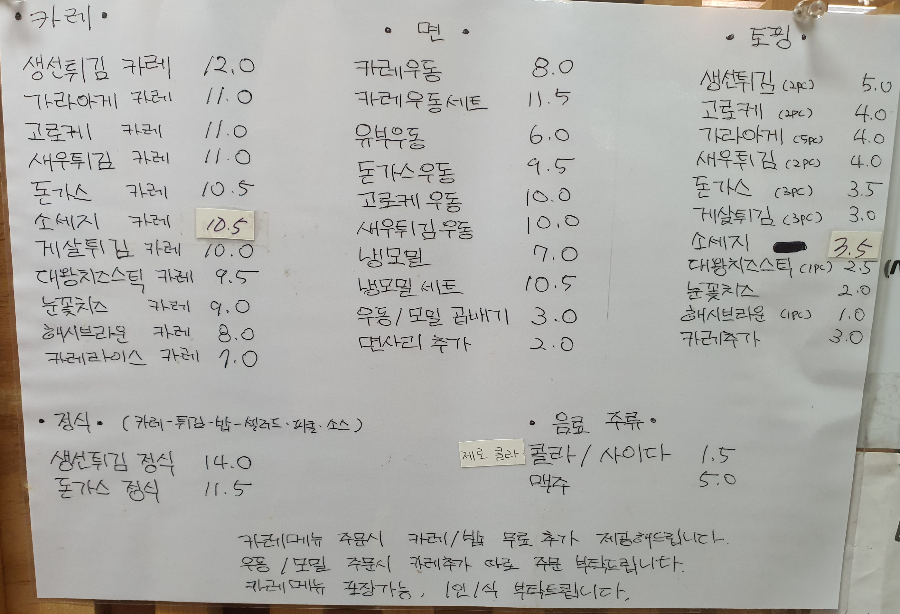 • 카레 •
생선튀김 카레 12.0
가라아게 카레 11.0
고로케 카레 11.0
새우튀김 카레 11.0
돈가스 카레 10.5
소세지 카레 10.5
게살튀김 카레 10.0
대왕치즈스틱 카레 9.5
눈꽃치즈 카레 9.0
해시브라운 카레 8.0
카레라이스 카레 7.0
• 면 •
카레우동 8.0
카레우동세트 11.5
유부우동 6.0
돈가스우동 9.5
고로케 우동 10.0
새우튀김 우동 10.0
냉모밀 7.0
냉모밀 세트 10.5
우동/모밀 곱배기 3.0
면사리 추가 2.0
• 토핑 •
생선튀김 (2pc) 5.0
고로케 (2pc) 4.0
가라아게 (5pc) 4.0
새우튀김 (2pc) 4.0
돈가스 (3pc) 3.5
게살튀김 (3pc) 3.0
소세지 3.5
대왕치즈스틱 (1pc) 2.5
눈꽃치즈 2.0
해시브라운 (1pc) 1.0
카레추가 3.0
• 정식 • (카레-튀김-밥-샐러드·피클·소스)
생선튀김 정식 14.0
돈가스 정식 11.5
• 음료 주류 •
제로 콜라 콜라 / 사이다 1.5
맥주 5.0
카레메뉴 주문시 카레/밥 무료 추가 제공해드립니다.
우동/모밀 주문시 카레추가 따로 주문 부탁드립니다.
카레메뉴 포장가능, 1인 1식 부탁드립니다.